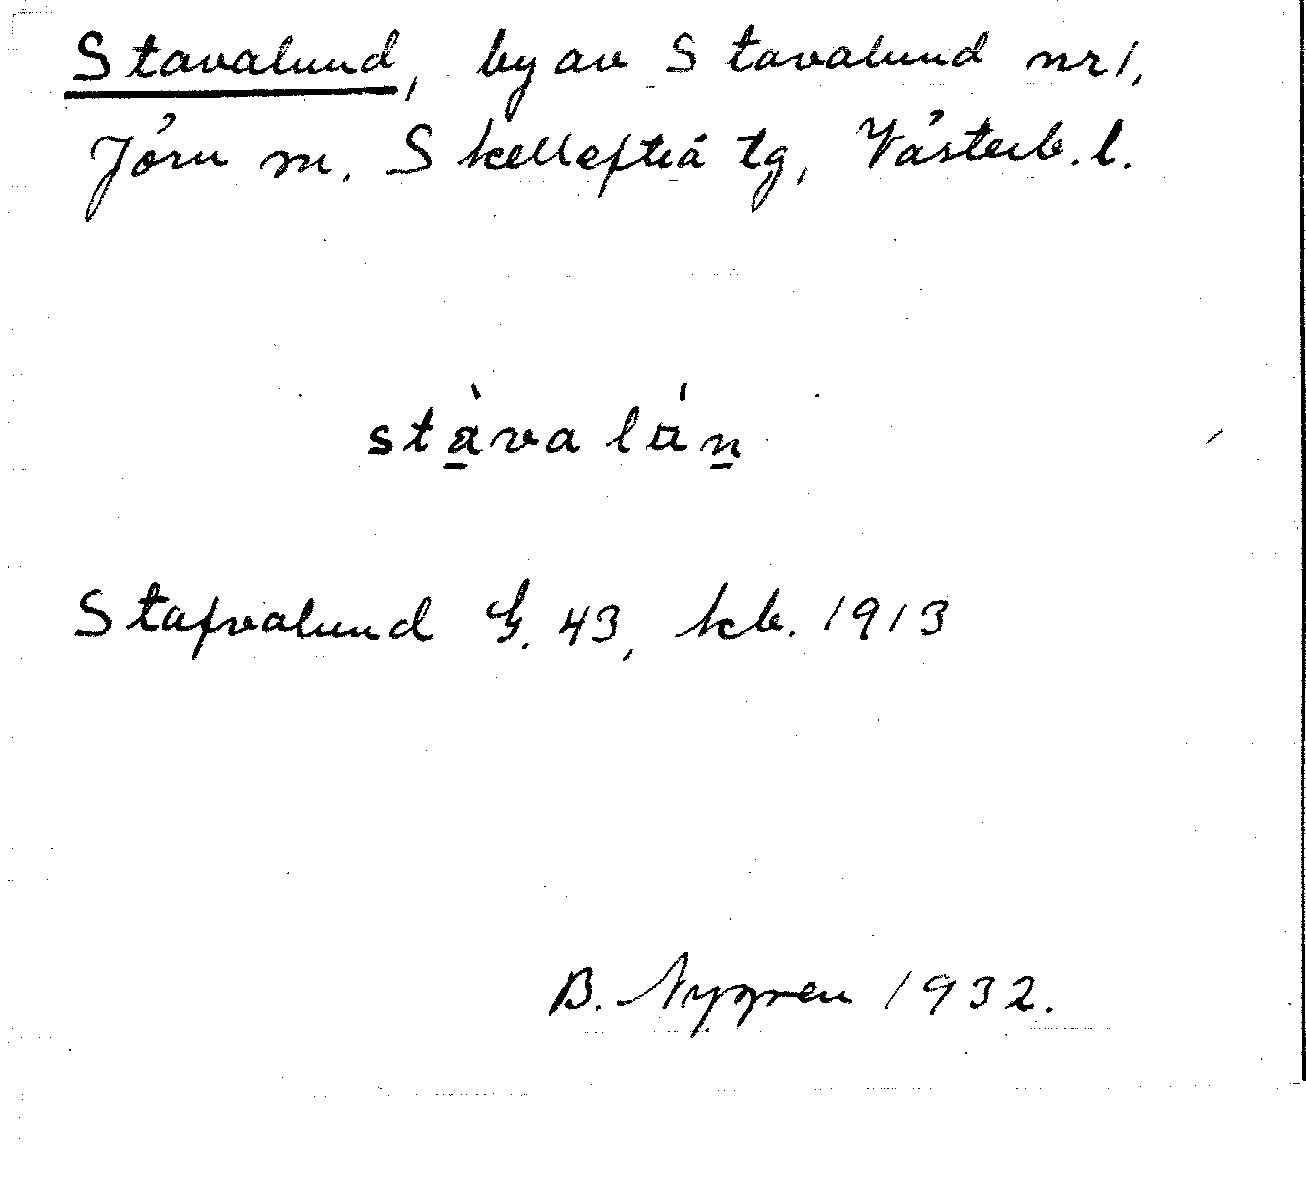 Stavalund, by av Stavalund nr 1,
Jörn sn. Skellefteå tg, Västerb. l.
stàvalán
Stafvalund G. 43, kb. 1913
B. Nygren 1932.